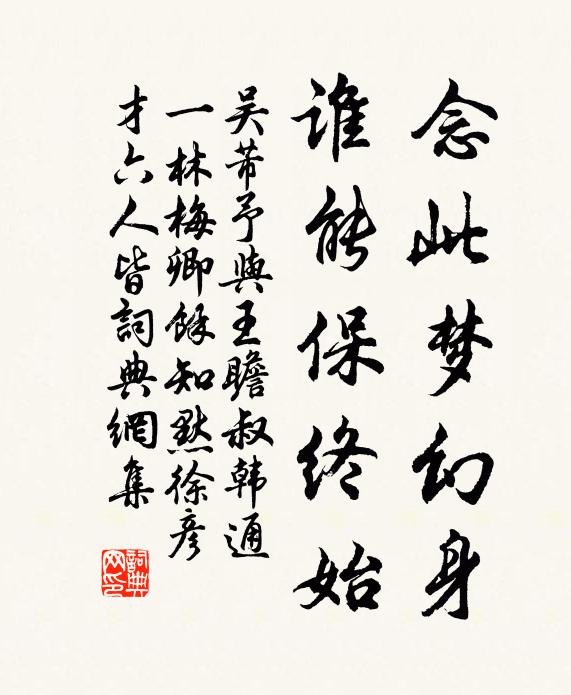 念此梦幻身
谁能保终始
吴芾予與王瞻叔韩通
一林梅卿餘知默徐彦
才六人皆詞典網集
詞典网印